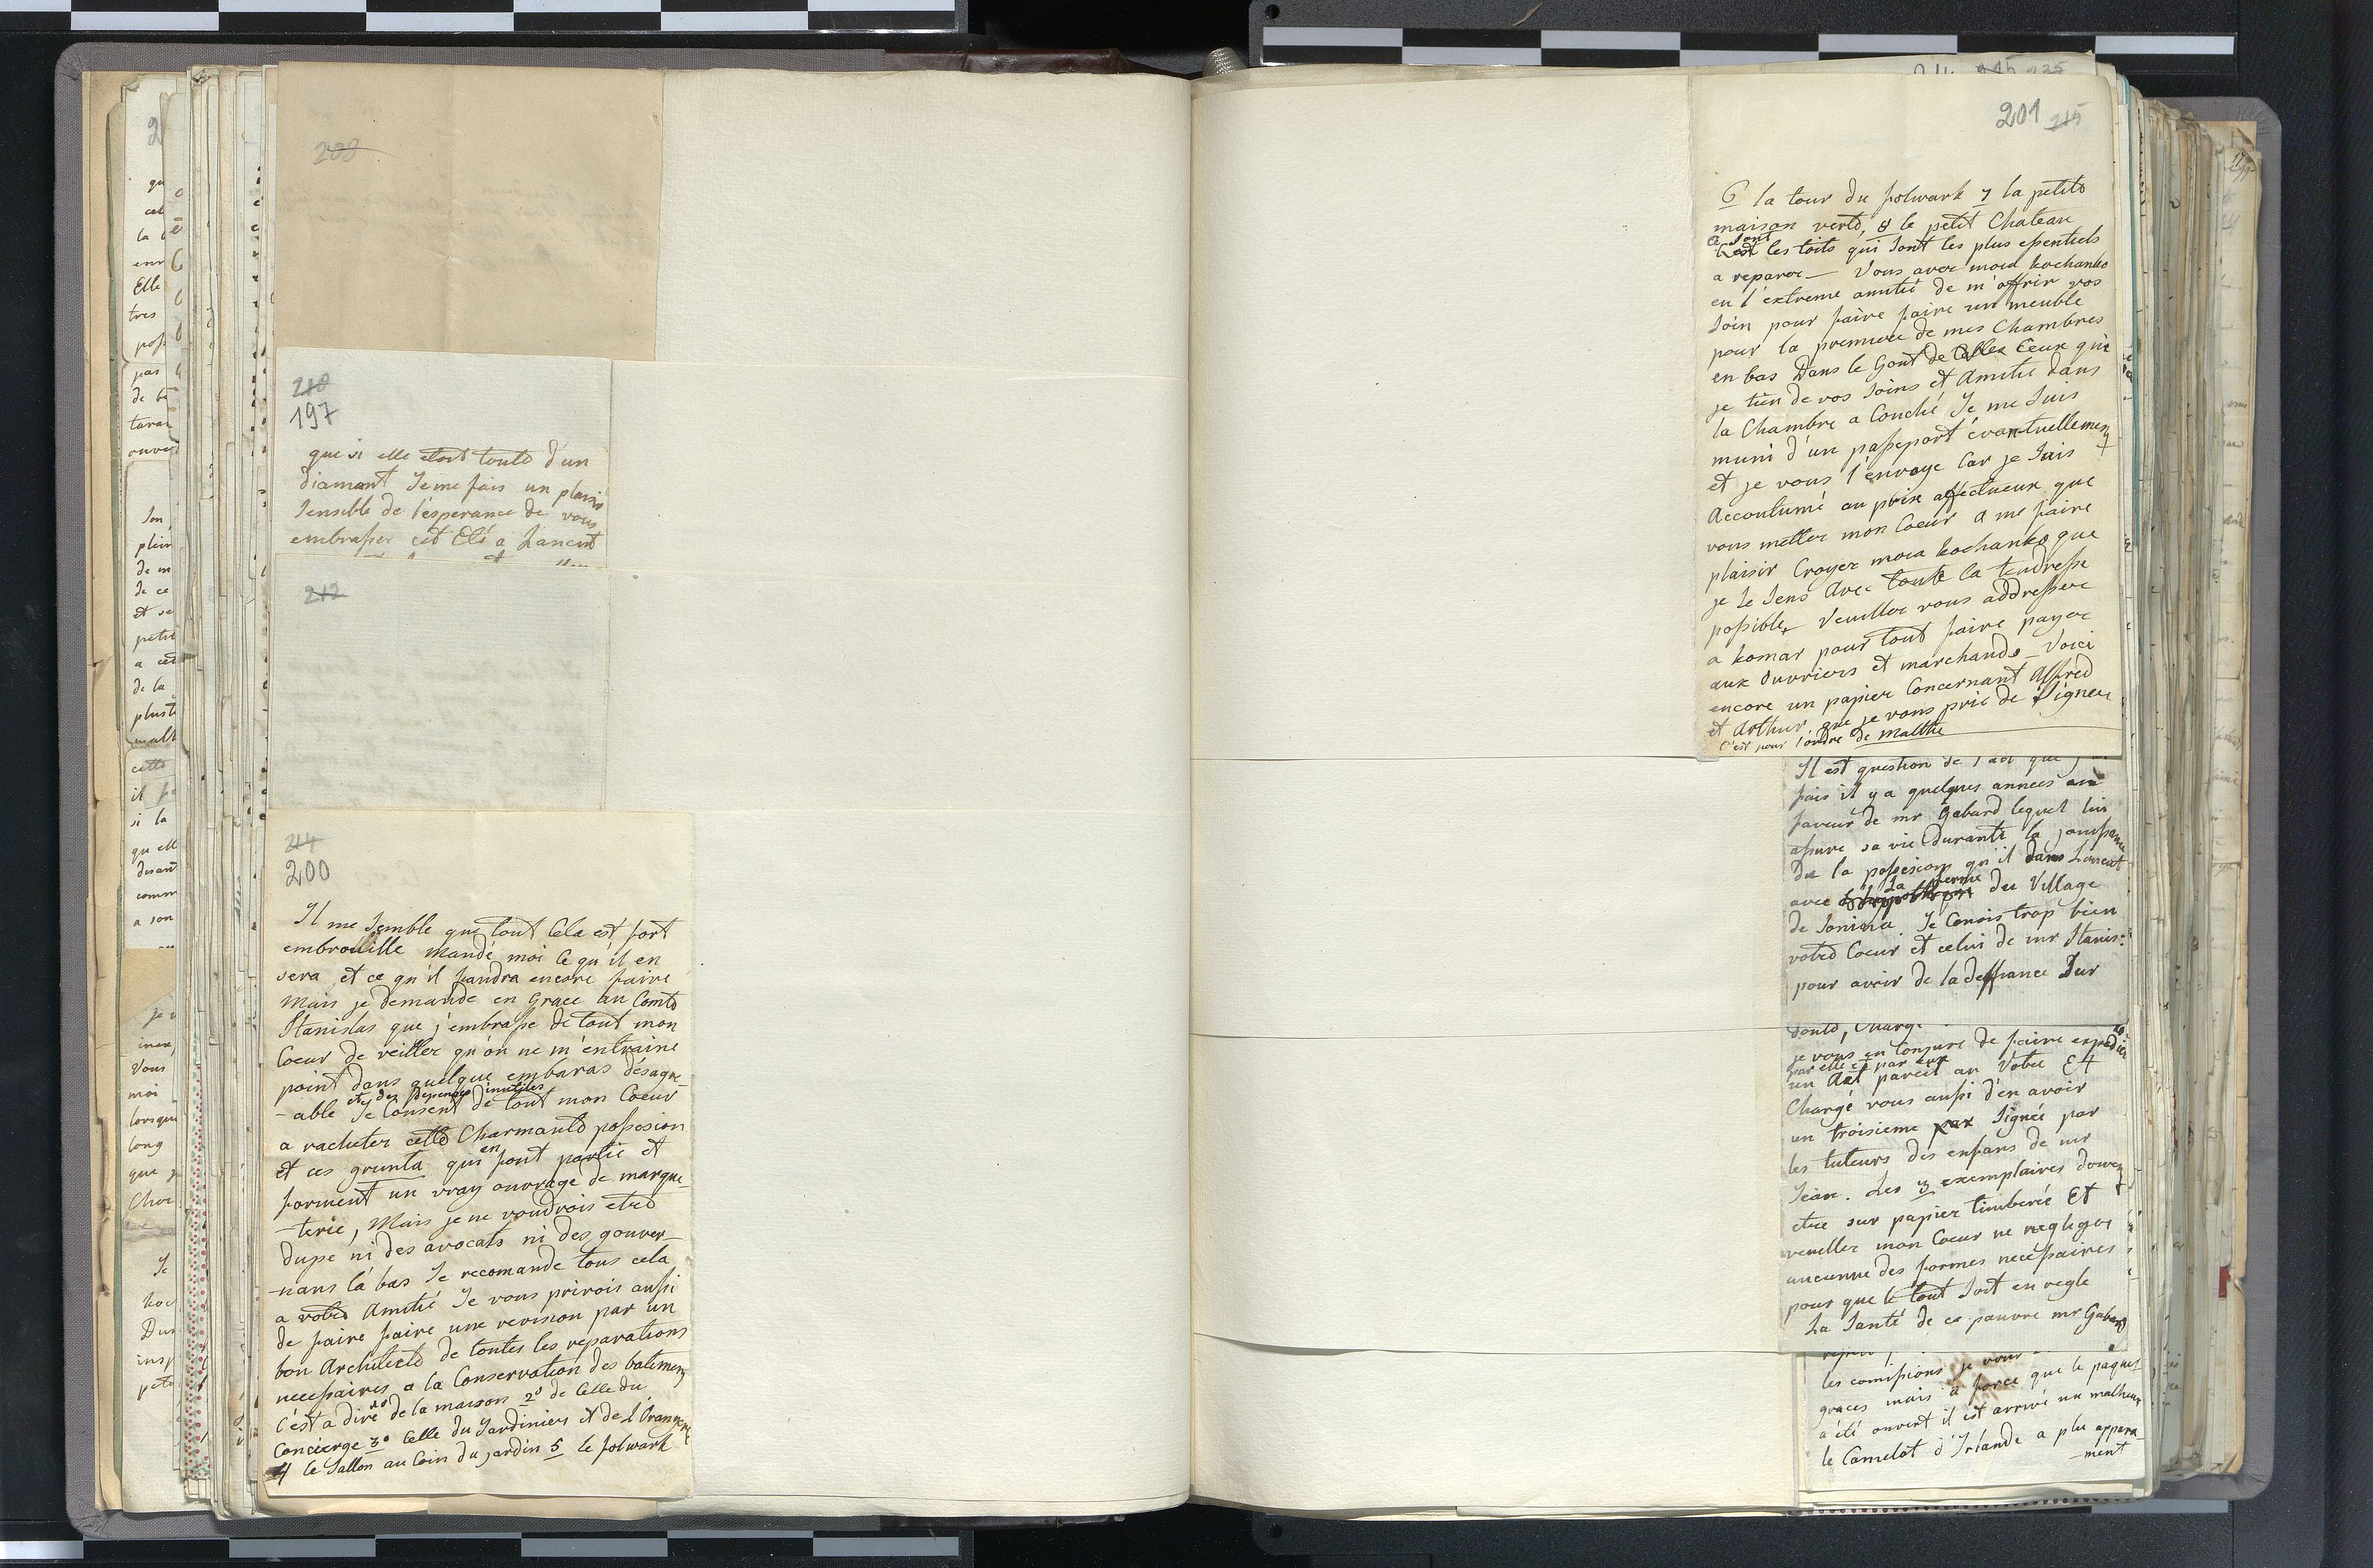 208
210
197
que si elle etoit toute d'un
diamant Je me fais un plaisir
Sensible de l'esperance de vous
embrasser cet Eté a Lancut
212
214
200
Il me Semble que tout Cela est fort
embrouille mandé moi Ce qu'il en
sera et ce qu'il faudra encore faire
Mais je demande en Grace au Comte
Stanislas que j'embrasse de tout mon
Coeur de veiller qu'on ne m'entraine
point dans quelque embaras désagre-
-able et des depenses inutiles Je Consent de tout mon Coeur
a racheter cette Charmante possesion
et ces grunta qui en font partie et
forment un vray ouvrage de marque-
-terie, Mais je ne voudrois etre
dupe ni des avocats ni des gouver-
-nans la bas Je recomande tous cela
a votre Amitié Je vous prirois aussi
de faire faire une revision par un
bon Architecte de toutes les reparations
necessaires a la Conservation des batimens
C'est a dire 1º de la maison 2º de Celle du
Concierge 3º Celle du Jardiniers et de L'Orangerie
4 le Sallon au Coin du jardin 5 le folwark
201 215
6 la tour du folwark 7 la petite
maison verte, 8 le petit Chateau
Ce Sont les toits qui Sont les plus essentiels
a reparer — Vous avez moia kochanko
eu l'extreme amitié de m'offrir vos
Soin pour faire faire un meuble
pour la premiere de mes Chambres
en bas Dans le Gout de Celles Ceux que
je tien de vos Soins et Amitié dans
la Chambre a Couché Je me Suis
muni d'un passeport éventuellement
et je vous l'envoye Car je Suis
Accoutumé au prix affectueux que
vous mettez mon Coeur a me faire
plaisir Croyez moia kochanko que
je le Sens Avec toute la tendresse
possible, Veuillez vous addresser
a komar pour tout faire payer
aux Ouvriers et marchands — Voici
encore un papier Concernant Alfred
et Arthur que je vous prie de Signer
C'est pour l'ordre de Malthe
Il est question de l'act que j'ai
fais il y a quelques annees en
faveur de mr Gabard lequel lui
assure sa vie Durante la jouissance
de la possesion qu'il dans Lancut
avec La ferme du Village
de Sonina. Je Conois trop bien
votre Coeur et celui de mr Stanis:
pour avoir de la deffiance Sur
doute, Charge
je vous en Conjure de faire expedier
par elle et par eux
un Act pareil au Votre Et
Chargé vous aussi d'en avoir
un troisieme par Signée par
les tuteurs des enfans de mr
Jean. Les 3 exemplaires doivent
etre sur papier timberé Et
veuillez mon Coeur ne negliger
aucunne des formes necessaires
pour que le tout Soit en regle
La Santé de ce pauvre mr Gabard
les comissions je vous
graces mais a force que le paquet
a été ouvert il est arrivé un malheur
le Camelot d'Irlande a plu appara-
-ment